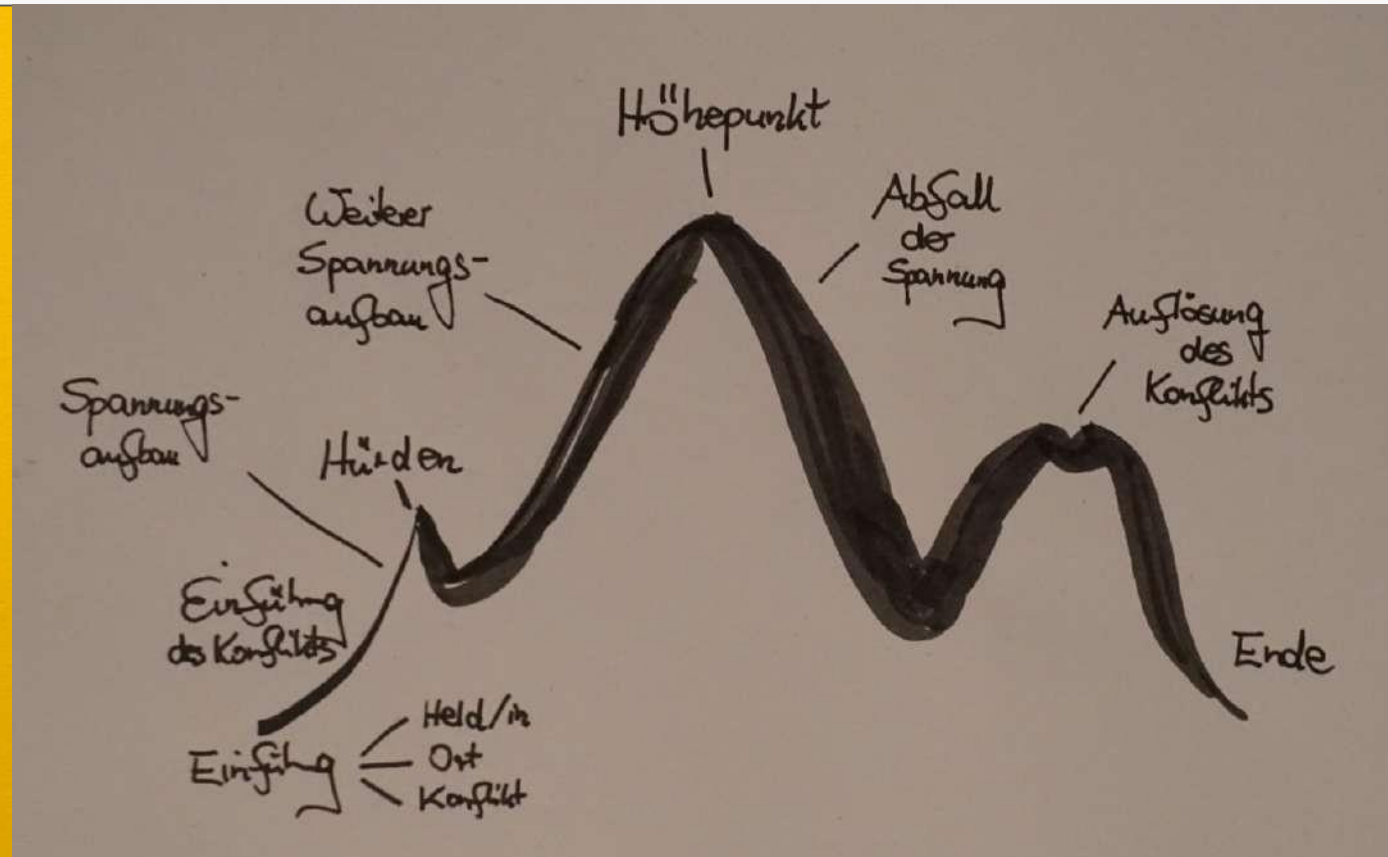 Höhepunkt
Weiterer
Spannungs-
aufbau
Abfall
der
Spannung
Auflösung
des
Konflikts
Spannungs-
aufbau
Hürden
Einführung
des Konflikts
Ende
Einführung
Held/in
Ort
Konflikt